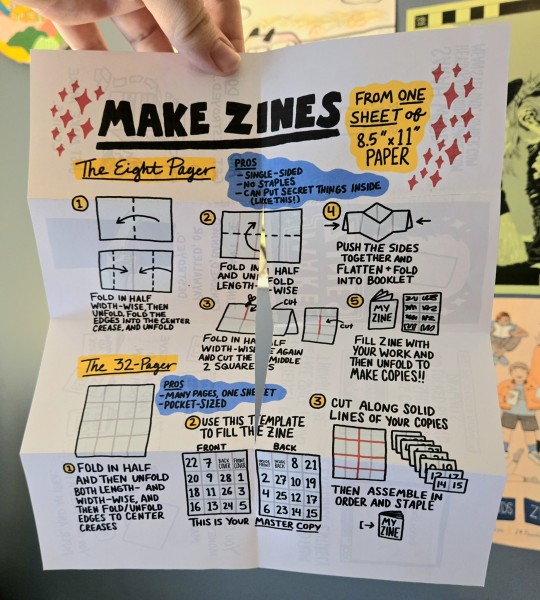 MAKE ZINES
FROM ONE
SHEET of
8.5" x 11"
PAPER
The Eight Pager
PROS
- SINGLE-SIDED
- NO STAPLES
- CAN PUT SECRET THINGS INSIDE
(LIKE THIS!)
1
FOLD IN HALF
WIDTH-WISE, THEN
UNFOLD, FOLD THE
EDGES INTO THE CENTER
CREASE, AND UNFOLD
2
FOLD IN HALF
AND UNFOLD
LENGTH-WISE
3
CUT
CUT
FOLD IN HALF
WIDTH-WISE AGAIN
AND CUT THE MIDDLE
2 SQUARES
4
PUSH THE SIDES
TOGETHER AND
FLATTEN + FOLD
INTO BOOKLET
5
MY
ZINE
FILL ZINE WITH
YOUR WORK AND
THEN UNFOLD TO
MAKE COPIES!!
The 32-Pager
PROS
- MANY PAGES, ONE SHEET
- POCKET-SIZED
1 FOLD IN HALF
AND THEN UNFOLD
BOTH LENGTH- AND
WIDTH-WISE, AND
THEN FOLD/UNFOLD
EDGES TO CENTER
CREASES
2 USE THIS TEMPLATE
TO FILL THE ZINE
FRONT
22 7 BACK COVER FRONT COVER
20 9 28 1
18 11 26 3
16 13 24 5
BACK
8 21
2 27 10 19
4 25 12 17
6 23 14 15
THIS IS YOUR MASTER COPY
3 CUT ALONG SOLID
LINES OF YOUR COPIES
14 15
THEN ASSEMBLE IN
ORDER AND STAPLE
MY
ZINE